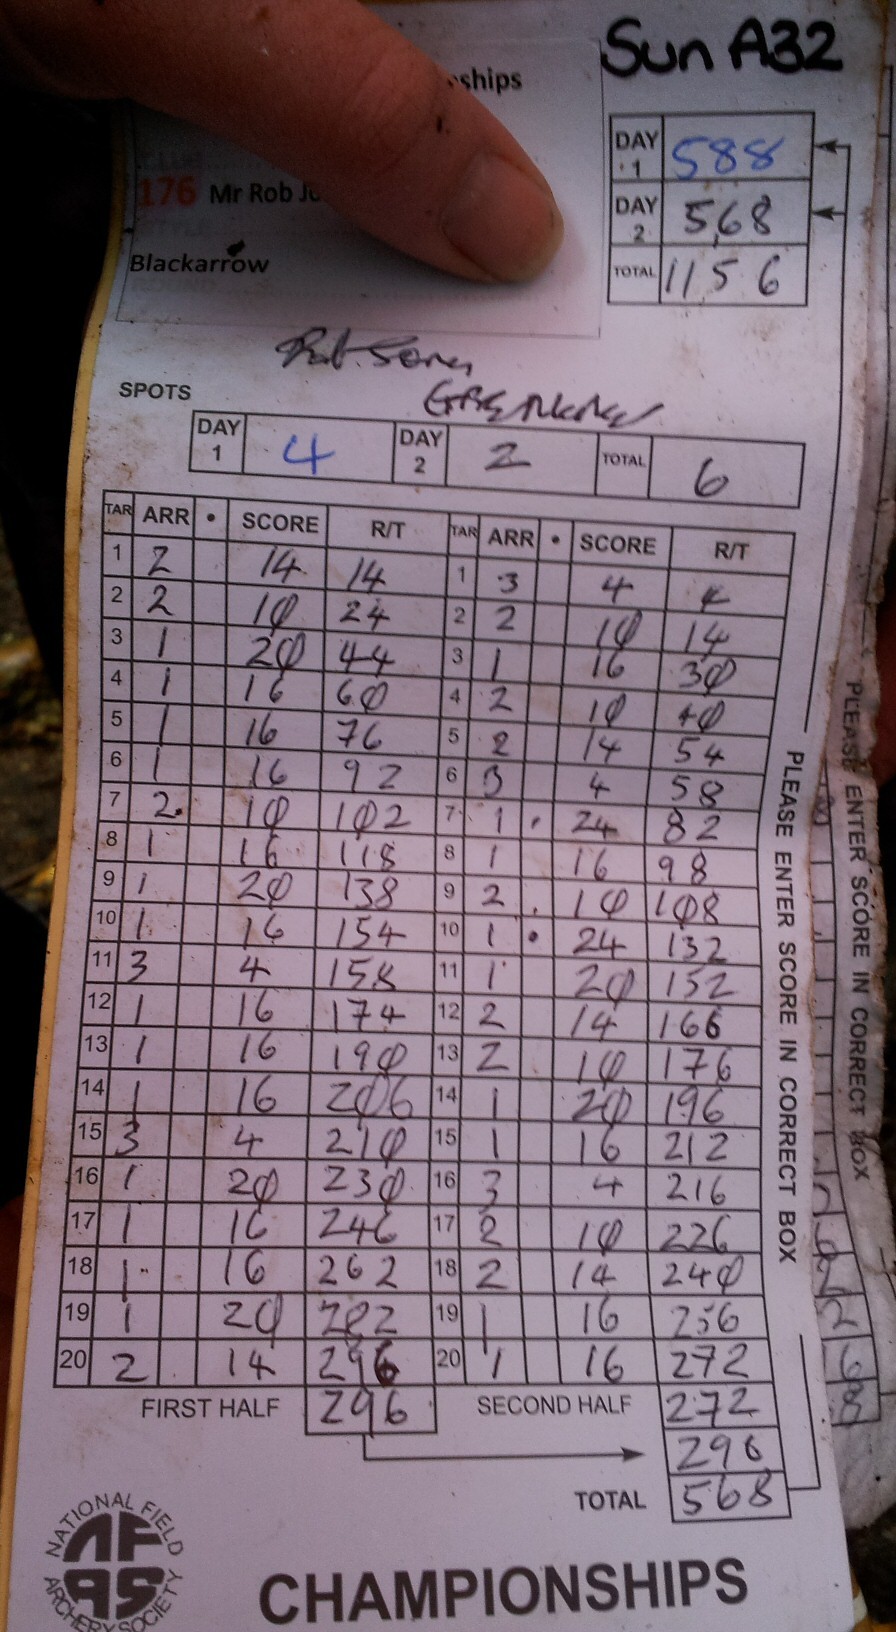 Sun A32
ships
176 Mr Rob Jo
Blackarrow
DAY 1 588
DAY 2 568
TOTAL 1156
SPOTS
DAY 1 4 DAY 2 2 TOTAL 6
TAR ARR • SCORE R/T TAR ARR • SCORE R/T
1 2 14 14 1 3 4 4
2 2 10 24 2 2 10 14
3 1 20 44 3 1 16 30
4 1 16 60 4 2 10 40
5 1 16 76 5 2 14 54
6 1 16 92 6 3 4 58
7 2 10 102 7 1 • 24 82
8 1 16 118 8 1 16 98
9 1 20 138 9 2 10 108
10 1 16 154 10 1 • 24 132
11 3 4 158 11 1 20 152
12 1 16 174 12 2 14 166
13 1 16 190 13 2 10 176
14 1 16 206 14 1 20 196
15 3 4 210 15 1 16 212
16 1 20 230 16 3 4 216
17 1 16 246 17 2 10 226
18 1 16 262 18 2 14 240
19 1 20 282 19 1 16 256
20 2 14 296 20 1 16 272
FIRST HALF 296 SECOND HALF 272
296
TOTAL 568
PLEASE ENTER SCORE IN CORRECT BOX
PLEASE ENTER SCORE IN CORRECT BOX
NATIONAL FIELD ARCHERY SOCIETY
NFAS
CHAMPIONSHIPS